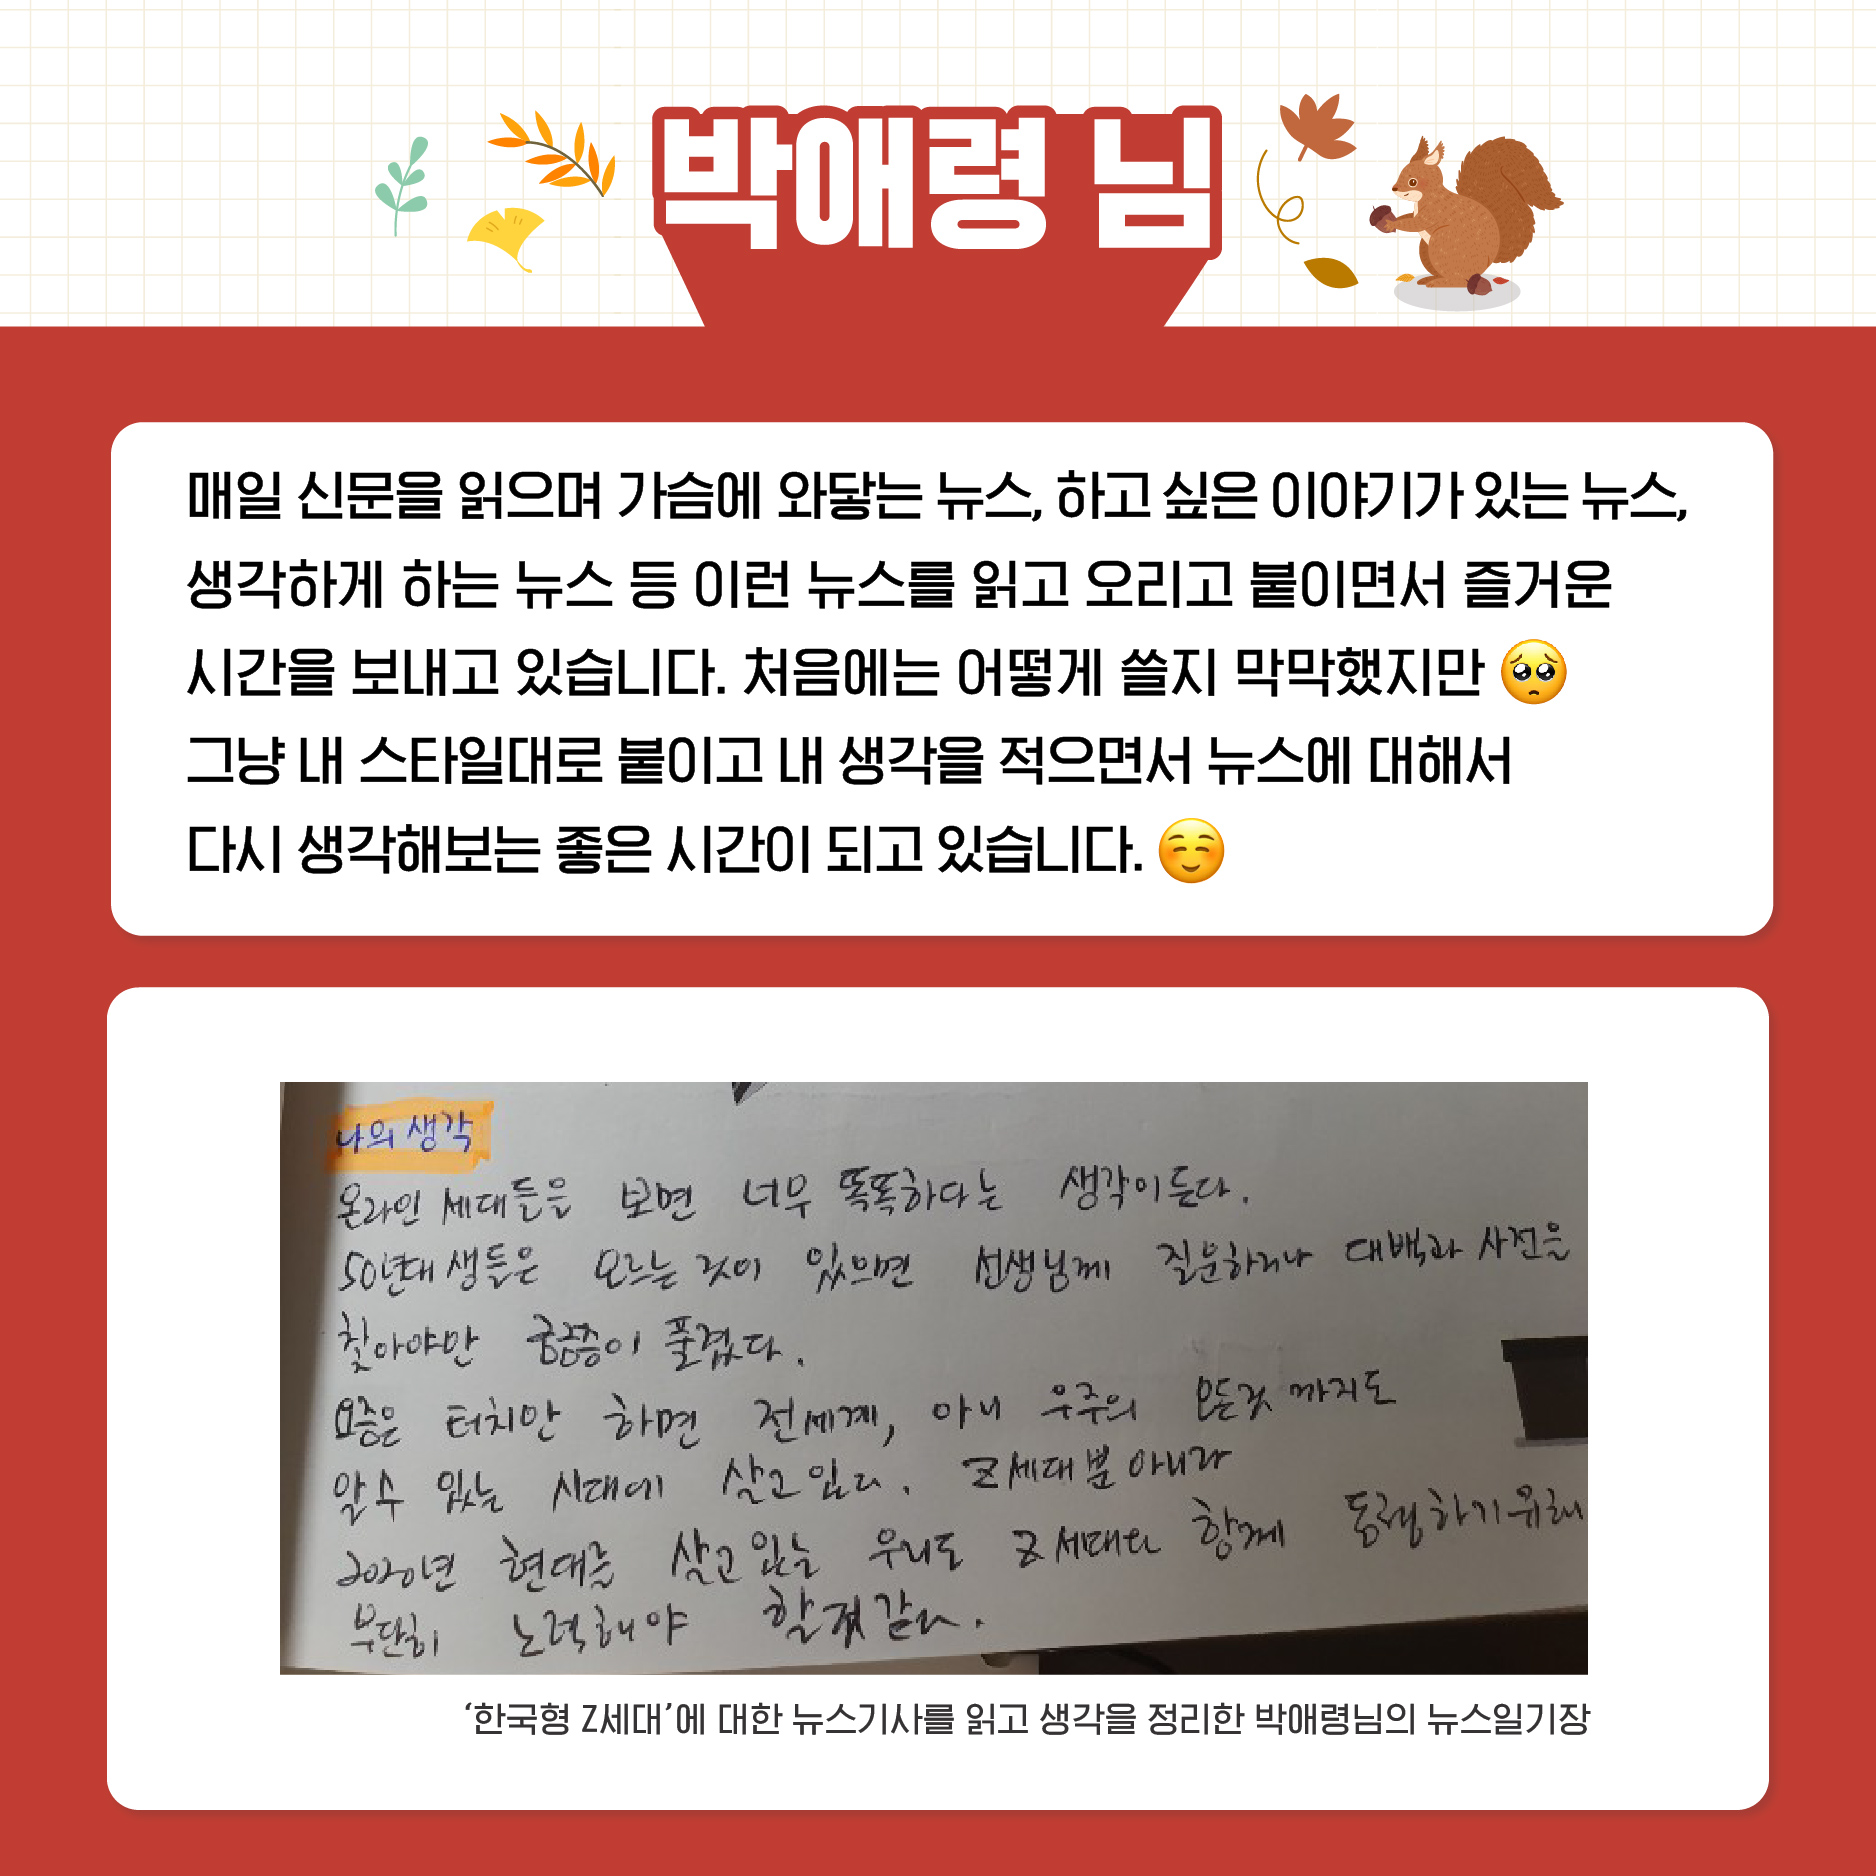 박애령 님
매일 신문을 읽으며 가슴에 와닿는 뉴스, 하고 싶은 이야기가 있는 뉴스,
생각하게 하는 뉴스 등 이런 뉴스를 읽고 오리고 붙이면서 즐거운
시간을 보내고 있습니다. 처음에는 어떻게 쓸지 막막했지만 🥺
그냥 내 스타일대로 붙이고 내 생각을 적으면서 뉴스에 대해서
다시 생각해보는 좋은 시간이 되고 있습니다. ☺️
나의 생각
온라인 세대들을 보면 너무 똑똑하다는 생각이 든다.
50년대 생들은 모르는 것이 있으면 선생님께 질문하거나 대백과 사전을
찾아야만 궁금증이 풀렸다.
요즘은 터치만 하면 전세계, 아니 우주의 모든것 까지도
알 수 있는 시대에 살고 있다. Z세대 뿐 아니라
2020년 현대를 살고 있는 우리도 Z세대와 함께 동행하기 위해
부단히 노력해야 할 것 같다.
‘한국형 Z세대’에 대한 뉴스기사를 읽고 생각을 정리한 박애령님의 뉴스일기장